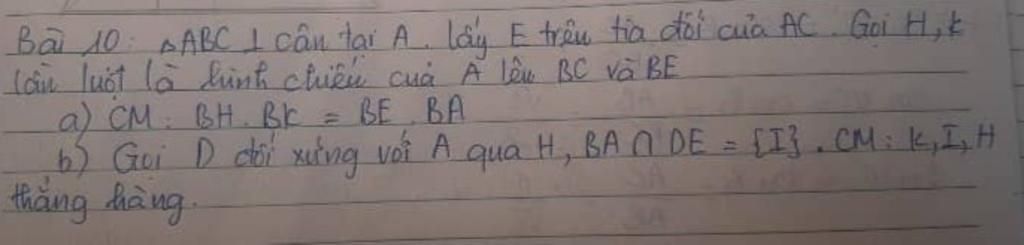 Bài 10: △ABC ⊥ cân tại A. lấy E trên tia đối của AC. Gọi H, k
lần lượt là hình chiếu cuả A lên BC và BE
a) CM: BH. BK = BE. BA
b) Gọi D đối xứng với A qua H, BA ∩ DE = {I}. CM: K, I, H
thẳng hàng.